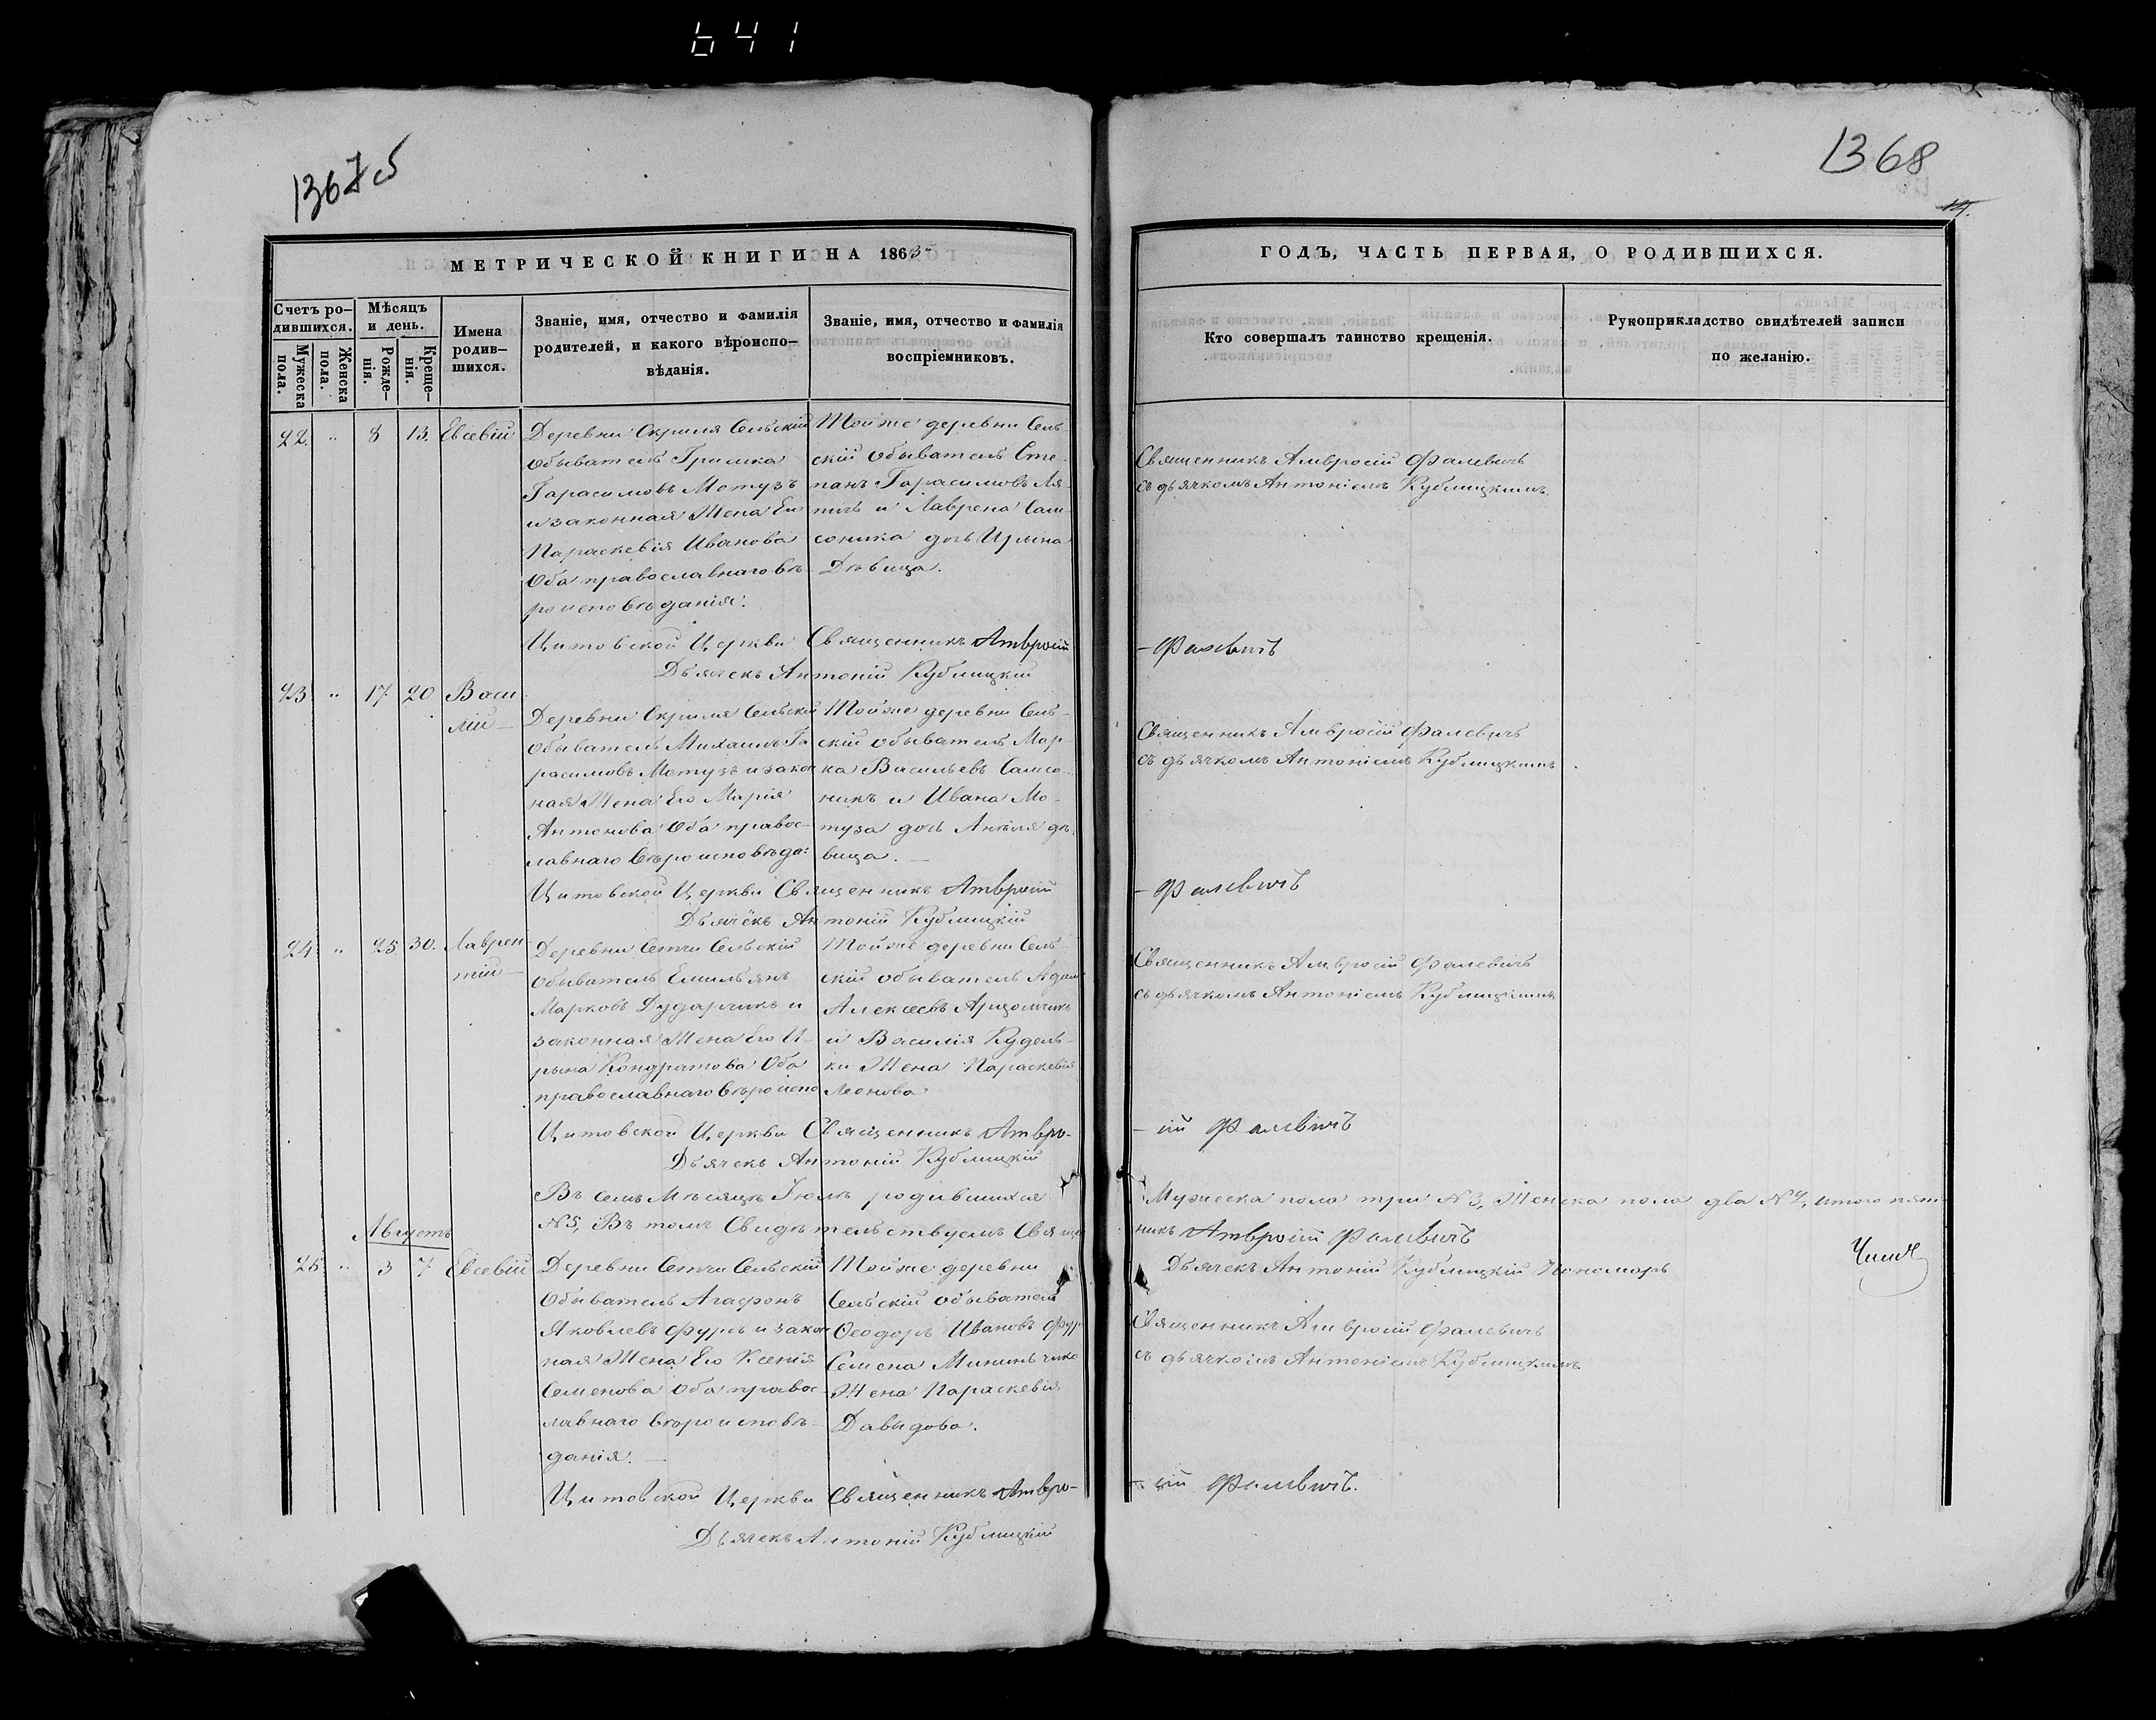 641
1367 об
1368
14.
МЕТРИЧЕСКОЙ КНИГИ НА 1863
ГОДЪ, ЧАСТЬ ПЕРВАЯ, О РОДИВШИХСЯ.
Счетъ ро-
дившихся.
Мужеска
пола.
Женска
пола.
Мѣсяцъ
и день.
Рожде-
нія.
Креще-
нія.
Имена
родив-
шихся.
Званіе, имя, отчество и фамилія
родителей, и какого вѣроиспо-
вѣданія.
Званіе, имя, отчество и фамилія
воспріемниковъ.
Кто совершалъ таинство крещенія.
Рукоприкладство свидѣтелей записи
по желанію.
22. " 8 13. Евсевій
Деревни Скриля Сельскій
обыватель Гришка
Гарасимовъ Мотузъ
и законная Жена Его
Параскевія Иванова
Оба православнаго вѣ-
роисповѣданія.
Тойже деревни Сель-
скій обыватель Сте-
панъ Гарасимовъ Ля-
пичъ и Лаврена Сам-
соника дочь Ирина
Дѣвица.
Священникъ Амвросій Фалевичъ
съ дьячкомъ Антоніемъ Кублицкимъ.
Цитовской Церкви Священникъ Амвросій
- Фалевичъ
Дьячекъ Антоній Кублицкій
23 " 17 20 Васи
лій -
Деревни Скриля Сельскій
обыватель Михаилъ Га
расимовъ Мотузъ и закон
ная Жена Его Марія
Антонова Оба правос-
лавнаго вѣроисповѣда:
Тойже деревни Сель-
скій обыватель Мар-
ка Васильевъ Самсо-
никъ и Ивана Мо-
туза дочь Анѣля дѣ-
вица. -
Священникъ Амвросій Фалевичъ
съ дьячкомъ Антоніемъ Кублицкимъ
Цитовской Церкви Священникъ Амвросій
- Фалевичъ
Дьячекъ Антоній Кублицкій
24 " 25 30. Лаврен
тій -
Деревни Сетчи Сельскій
обыватель Емильянъ
Марковъ Дударчикъ и
законная Жена Его И-
рына Кондратова Оба
православнаго вѣроиспо
Тойже деревни Сель-
скій обыватель Адам
Алексеевъ
и Василія Кудель-
ки Жена Параскевія
Леонова
Священникъ Амвросій Фалевичъ
съ дьячкомъ Антоніемъ Кублицкимъ
Цитовской Церкви Священникъ Амвро-
- сій Фалевичъ
Дьячекъ Антоній Кублицкій
Въ семъ Мѣсяцѣ Іюлѣ родившихся
Мужеска пола три №3, Женска пола два №2, итого пять
№5, Въ томъ Свидѣтельствуемъ Священ
никъ Амвросій Фалевичъ
Дьячекъ Антоній Кублицкій Пономарь
Августъ
25 " 3 7 Евсевій
Деревни Сетчи Сельскій
Обыватель Агафонъ
Яковлевъ Фурсъ и закон
ная Жена Его Ксенія
Семенова Оба правос-
лавнаго вѣроисповѣ-
данія. -
Тойже деревни
Сельскій обыватель
Ѳеодоръ Ивановъ Фур
Семена Мининчика
Жена Параскевія
Давыдова.
Священникъ Амвросій Фалевичъ
съ дьячкомъ Антоніемъ Кублицкимъ
Цитовской Церкви Священникъ Амвро-
- сій Фалевичъ.
Дьячекъ Антоній Кублицкій